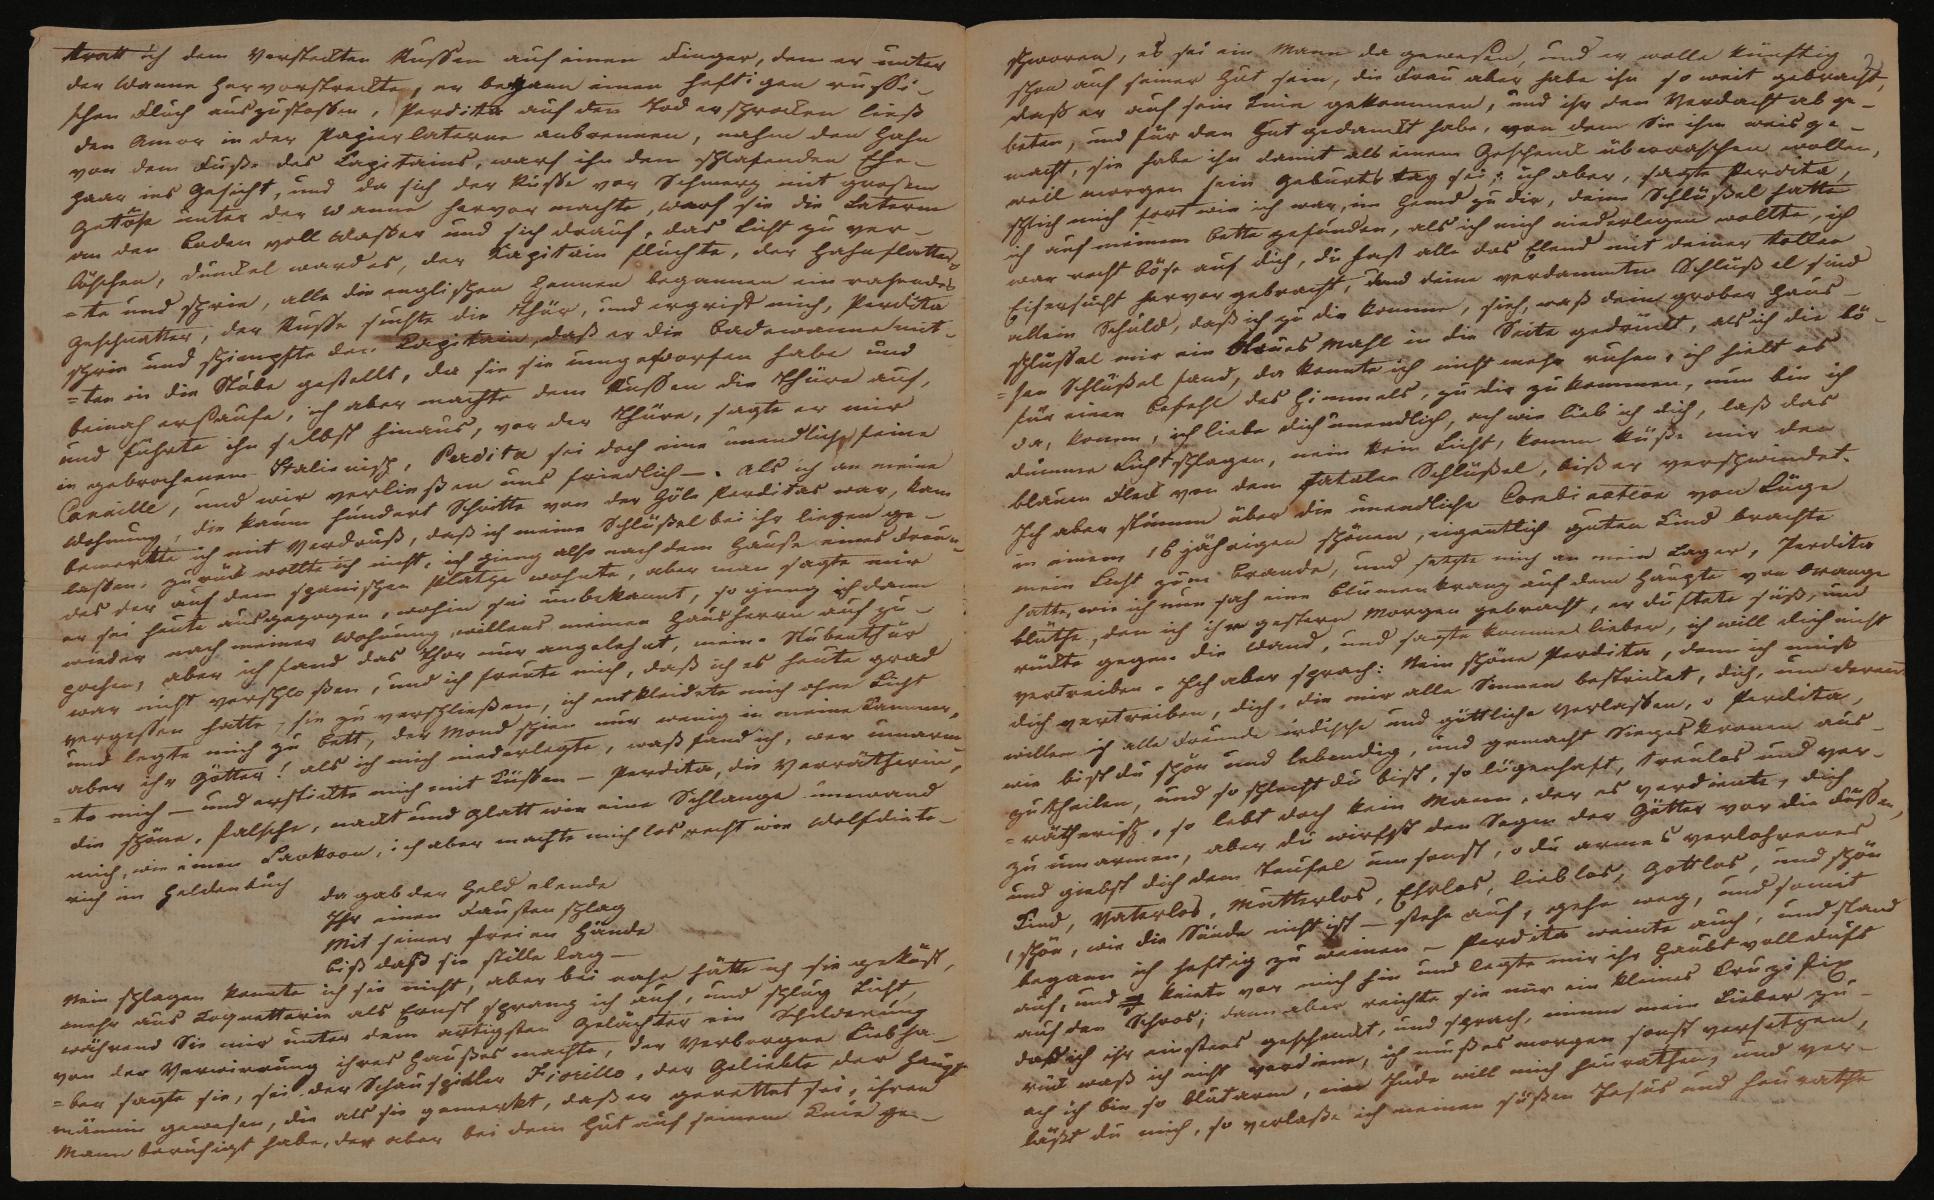 tratt ich dem versteckten Russen auf einen Finger, den er unter
der Wanne hervorstreckte, er begann einen heftigen russi-
schen Fluch auszustossen, Perdita auf den Tod erschrocken ließ
den Amor in der Papierlaterne anbrennen, nahm den Hahn
von dem Fuße des Capitains, warf ihn dem schlafenden Ehe-
paar ins Gesicht, und da sich der Russe vor Schmerz mit grosem
Getöse unter der Wanne hervor machte, warf sie die Laterne
an den Boden voll Wasser und sich drauf, das Licht zu ver-
löschen, dunckel ward es, der Capitain fluchte, der Hahn flatter
=te und schrie, alle die englischen Hennen begannen ein rasendes
Geschnatter, der Russe suchte die Thür, und ergriff mich, Perdita
schrie und schimpfte den Capitain, daß er die Badewanne mit-
=ten in die Stube gestellt, da sie sie umgeworfen habe und
beinah ersaufe, ich aber machte dem Russen die Thüre auf,
und führte ihn selbst hinaus, vor der Thüre, sagte er mir
in gebrochenem Italienisch, Perdita sei doch eine unendlich feine
Canaille, und wir verließen uns friedlich —. Als ich an meine
Wohnung, die kaum hundert Schritte von der Höle Perditas war, kam
bemerkte ich mit Verdruß, daß ich meine Schlüßel bei ihr liegen ge-
lassen, zurück wollte ich nicht, ich gieng also nach dem Hause eines Freun-
des der auf dem spanischen Platze wohnte, aber man sagte mir
er sei heute ausgezogen, wohin sei unbekannt, so gieng ich dann
wieder nach meiner Wohnung, willens meinen Hausherrn auf zu-
pochen, aber ich fand das Thor nur angelehnt, meine Stubenthür
war nicht verschlossen, und ich freute mich, daß ich es heute grad
vergessen hatte, sie zu verschließen, ich entkleidete mich ohne Licht
und legte mich zu Bett, der Mond schien nur wenig in meine Kammer,
aber ihr Götter! als ich mich niederlegte, waß fand ich, wer umarm-
=te mich — und erstickte mich mit Küssen — Perdita, die Verrätherin,
die schöne, falsche, nackt und glatt wie eine Schlange umwand
mich, wie einen Laokoon, ich aber machte mich los, recht wie Wolfdiete-
rich im Heldenbuch
da gab der Held elende
Ihr einen Faustenschlag
Mit seiner freien Hände
biß daß sie stille lag —
Nein schlagen konnte ich sie nicht, aber bei nahe hätte ich sie geküst,
mehr aus Coquetterie als Ernst sprang ich auf, und schlug Licht,
während Sie mir unter dem artigsten Gelächter eine Schilderung
von der Verwirrung ihres Haußes machte, der verborgne Liebha-
=ber sagte sie, sei der Schauspieler Fiorillo, der Geliebte der Haupt-
männin gewesen, die als sie gemerkt, daß er gerettet sei, ihren
Mann beruhigt habe, der aber bei dem Hut auf seinem Knie ge-
schworen, es sei ein Mann da gewesen, und er wolle künftig
schon auf seiner Hut sein, die Frau aber habe ihn so weit gebracht,
daß er auf sein Knie gekommen, und ihr den Verdacht abge-
beten, und für den Hut gedanckt habe, von dem Sie ihm weis ge-
macht, sie habe ihn damit als einem Geschenck überraschen wollen,
weil morgen sein Geburtstag sei; ich aber, sagte Perdita,
schlich mich fort wie ich war, im Hemd zu dir, deine Schlüßel hatte
ich auf meinem Bette gefunden, als ich mich niederlegen wollte, ich
war recht böse auf dich, du hast alle das Elend mit deiner tollen
Eifersucht hervor gebracht, und deine verdammten Schlüßel sind
allein Schuld, daß ich zu dir komme, sieh, waß dein grober Haus-
schlüssel mir ein blaues Mahl in die Seite gedrückt, als ich die bö-
=sen Schlüßel fand, da konnte ich nicht mehr ruhen, ich hielt es
für einen Befehl des Himmels, zu dir zu kommen, nun bin ich
da, komm, ich liebe dich unendlich, ach wie lieb ich dich, laß das
dumme Lichtschlagen, nein kein Licht, komm küße mir den
blauen Fleck von dem fatalen Schlüßel, biß er verschwindet.
Ich aber stumm über die unendliche Combination von Lüge
in einem 16 jährigen schönen, eigentlich guten Kind brachte
mein Licht zum Brande, und setzte mich an mein Lager, Perdita
hatte, wie ich nun sah eine Blumenkranz auf dem Haupte von Orange
blüthe, den ich ihr gestern Morgen gebracht, er duftete süß, und
rückte gegen die Wand, und sagte komme lieber, ich will dich nicht
vertreiben. Ich aber sprach: Nein schöne Perdita, denn ich muß
dich vertreiben, dich, die mir alle Sinnen bestricket, dich, um deren
willen ich alle Freunde irdische und göttliche verlassen, o Perdita,
wie bist du schön und lebendig, und gemacht Siegeskronen aus-
zutheilen, und so schlecht du bist, so lügenhaft, treulos und ver-
=rätherisch, so lebt doch kein Mann, der es verdiente, dich
zu umarmen, aber du wirfst den Segen der Götter vor die Füssen,
und giebst dich dem Teufel umsonst, o du armes verlohrenes
Kind, Vaterlos, Mutterlos, Ehrlos, lieblos, Gottlos, und schön
(schön, wie die Sünde nicht ist — stehe auf, gehe weg, und somit
begann ich heftig zu weinen — Perdita weinte auch, und stand
auf, und kniete vor mich hin und legte mir ihr Haubt voll Duft
auf den Schoos; dann aber reichte sie mir ein kleines Cruzifix
daß ich ihr einstens geschenckt, und sprach, nimm mein Lieber zu-
rück waß ich nicht verdiene, ich muß es morgen sonst versetzen,
ach ich bin so blutarm, ein Jude will mich heurathen, und ver-
läßt du mich, so verlaße ich meinen süßen Jesus und heurathe